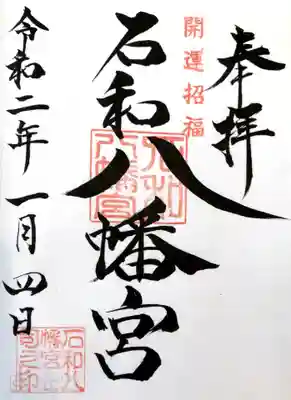 奉拝
開運招福
石和八幡宮
石和八幡宮
令和二年一月四日
石和八
幡宮
司之印